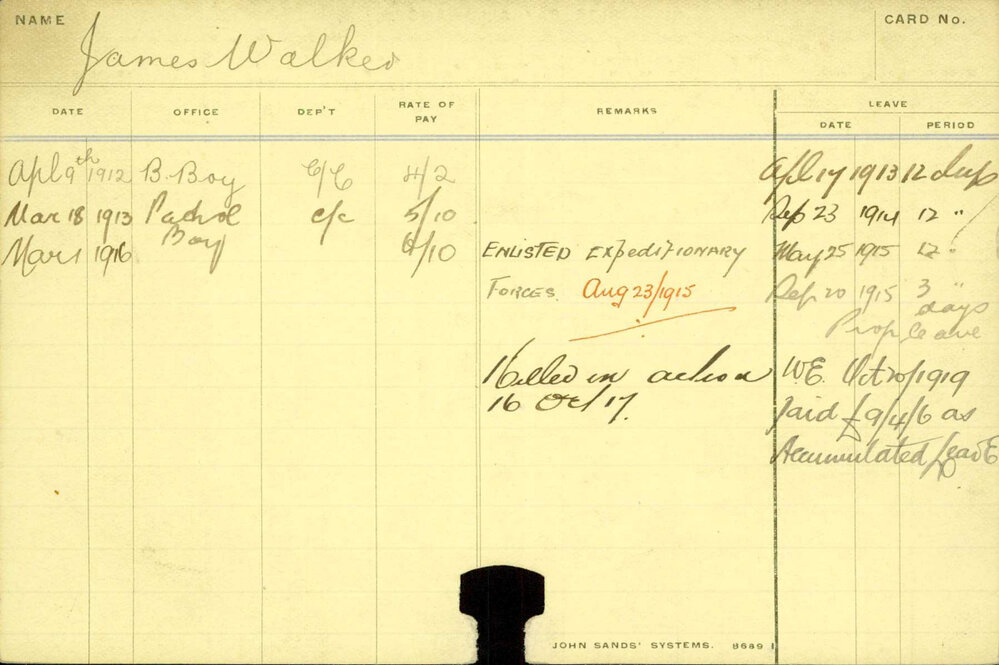 NAME
James Walker
CARD No.
DATE OFFICE DEP'T RATE OF PAY REMARKS LEAVE
DATE PERIOD
Apl 9th 1912 B. Boy C/C 4/2 Apl 17 1913 12 days
Mar 18 1913 Patrol Boy c/c 5/10 Sep 23 1914 12 "
Mar 1 1916 6/10 ENLISTED EXPEdITIONARY May 25 1915 12 "
FORCES. Aug 23/1915 Sep 20 1915 3 days
Prop leave
Killed in action W.E. Oct 20/1919
16 Oct 17. Paid £9/4/6 as
Accumulated leavE
JOHN SANDS' SYSTEMS. 8689